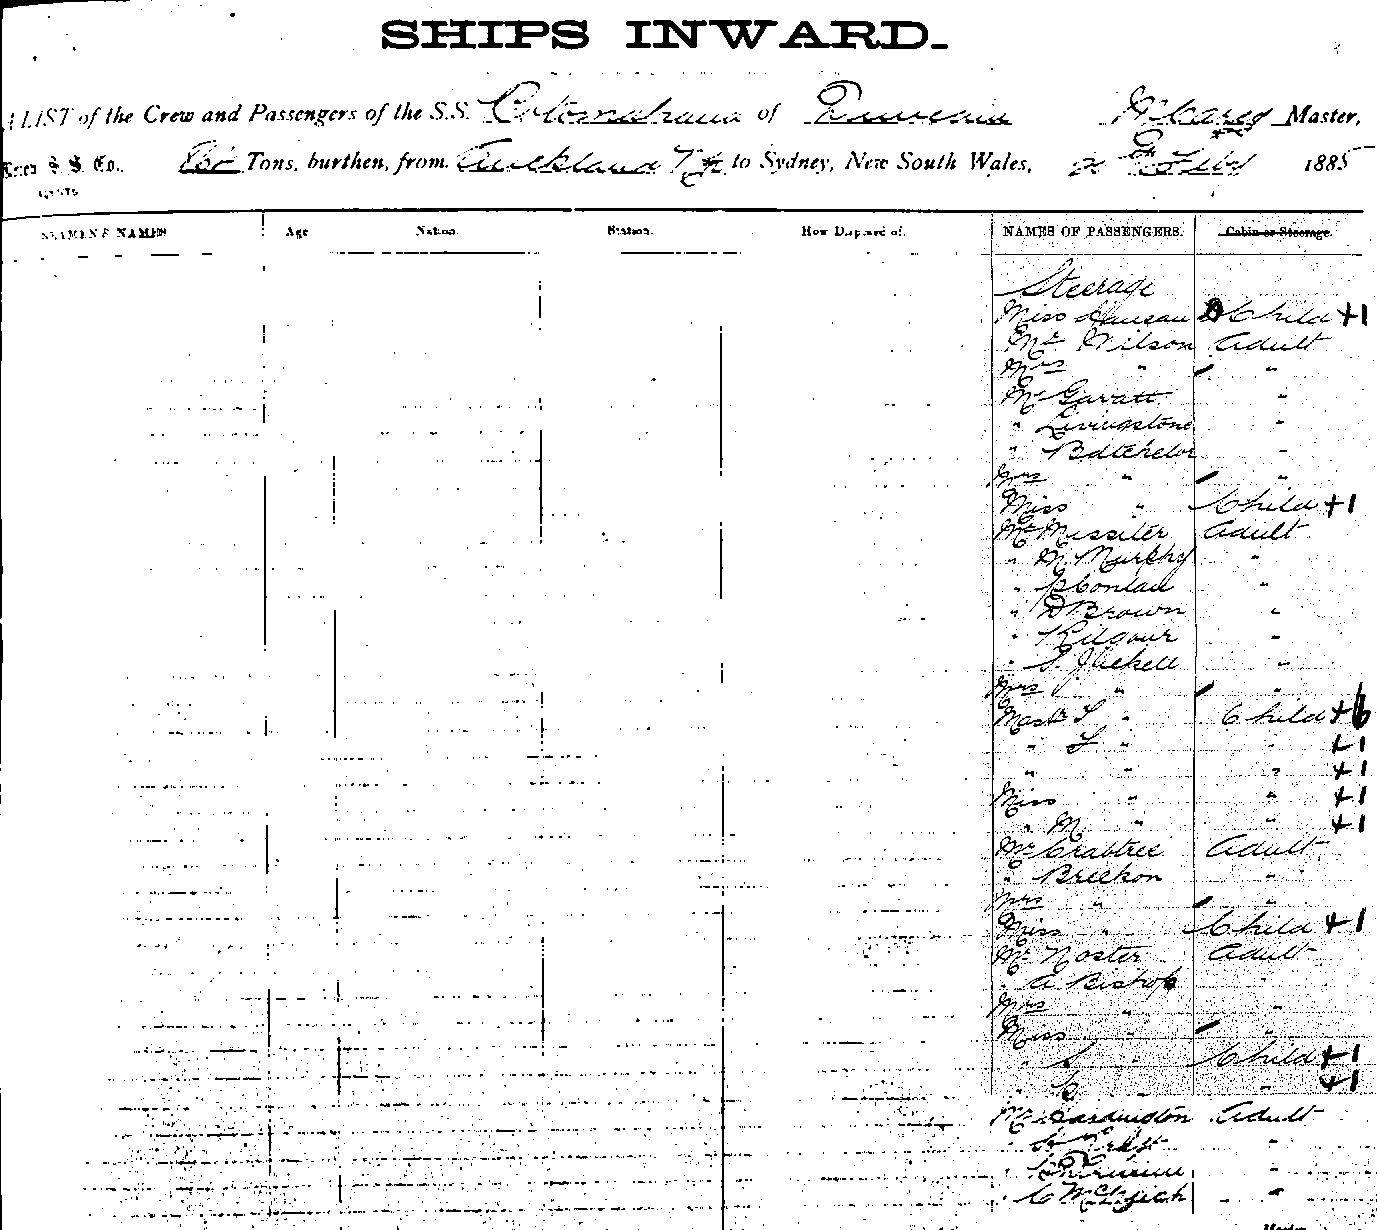 SHIPS INWARD.
A LIST of the Crew and Passengers of the S.S. Rotomahana of Dunedin Master,
S. S. Co., Tons, burthen, from Auckland N Z to Sydney, New South Wales, Feby 1885
SEAMEN'S NAMES Age Nation. Station. How Disposed of. NAMES OF PASSENGERS. Cabin or Steerage.
Steerage
Miss Child +1
Mr Wilson Adult
Mrs " "
Mr Gavatt "
" Livingstone "
" Batchelor "
Mrs " "
Miss " Child +1
Mr Missiter Adult
" M. Murphy "
" P Conlan "
" D Brown "
" Kilgour "
" S. "
Mrs " "
Mastr S " Child +6
" L " " +1
" " " +1
Miss " " +1
" M " " +1
Mr Crabtree Adult
" Breckon "
Mrs " "
Miss " Child +1
Mr Noster Adult
" A Bishop "
Mrs " "
Miss " "
" S " Child +1
" C " " +1
Mr Adult
" "
" "
" C "